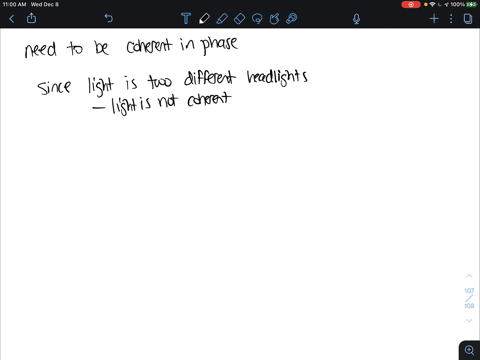 11:00 AM Wed Dec 8
100%
need to be coherent in phase
since light is two different headlights
— light is not coherent
107
108